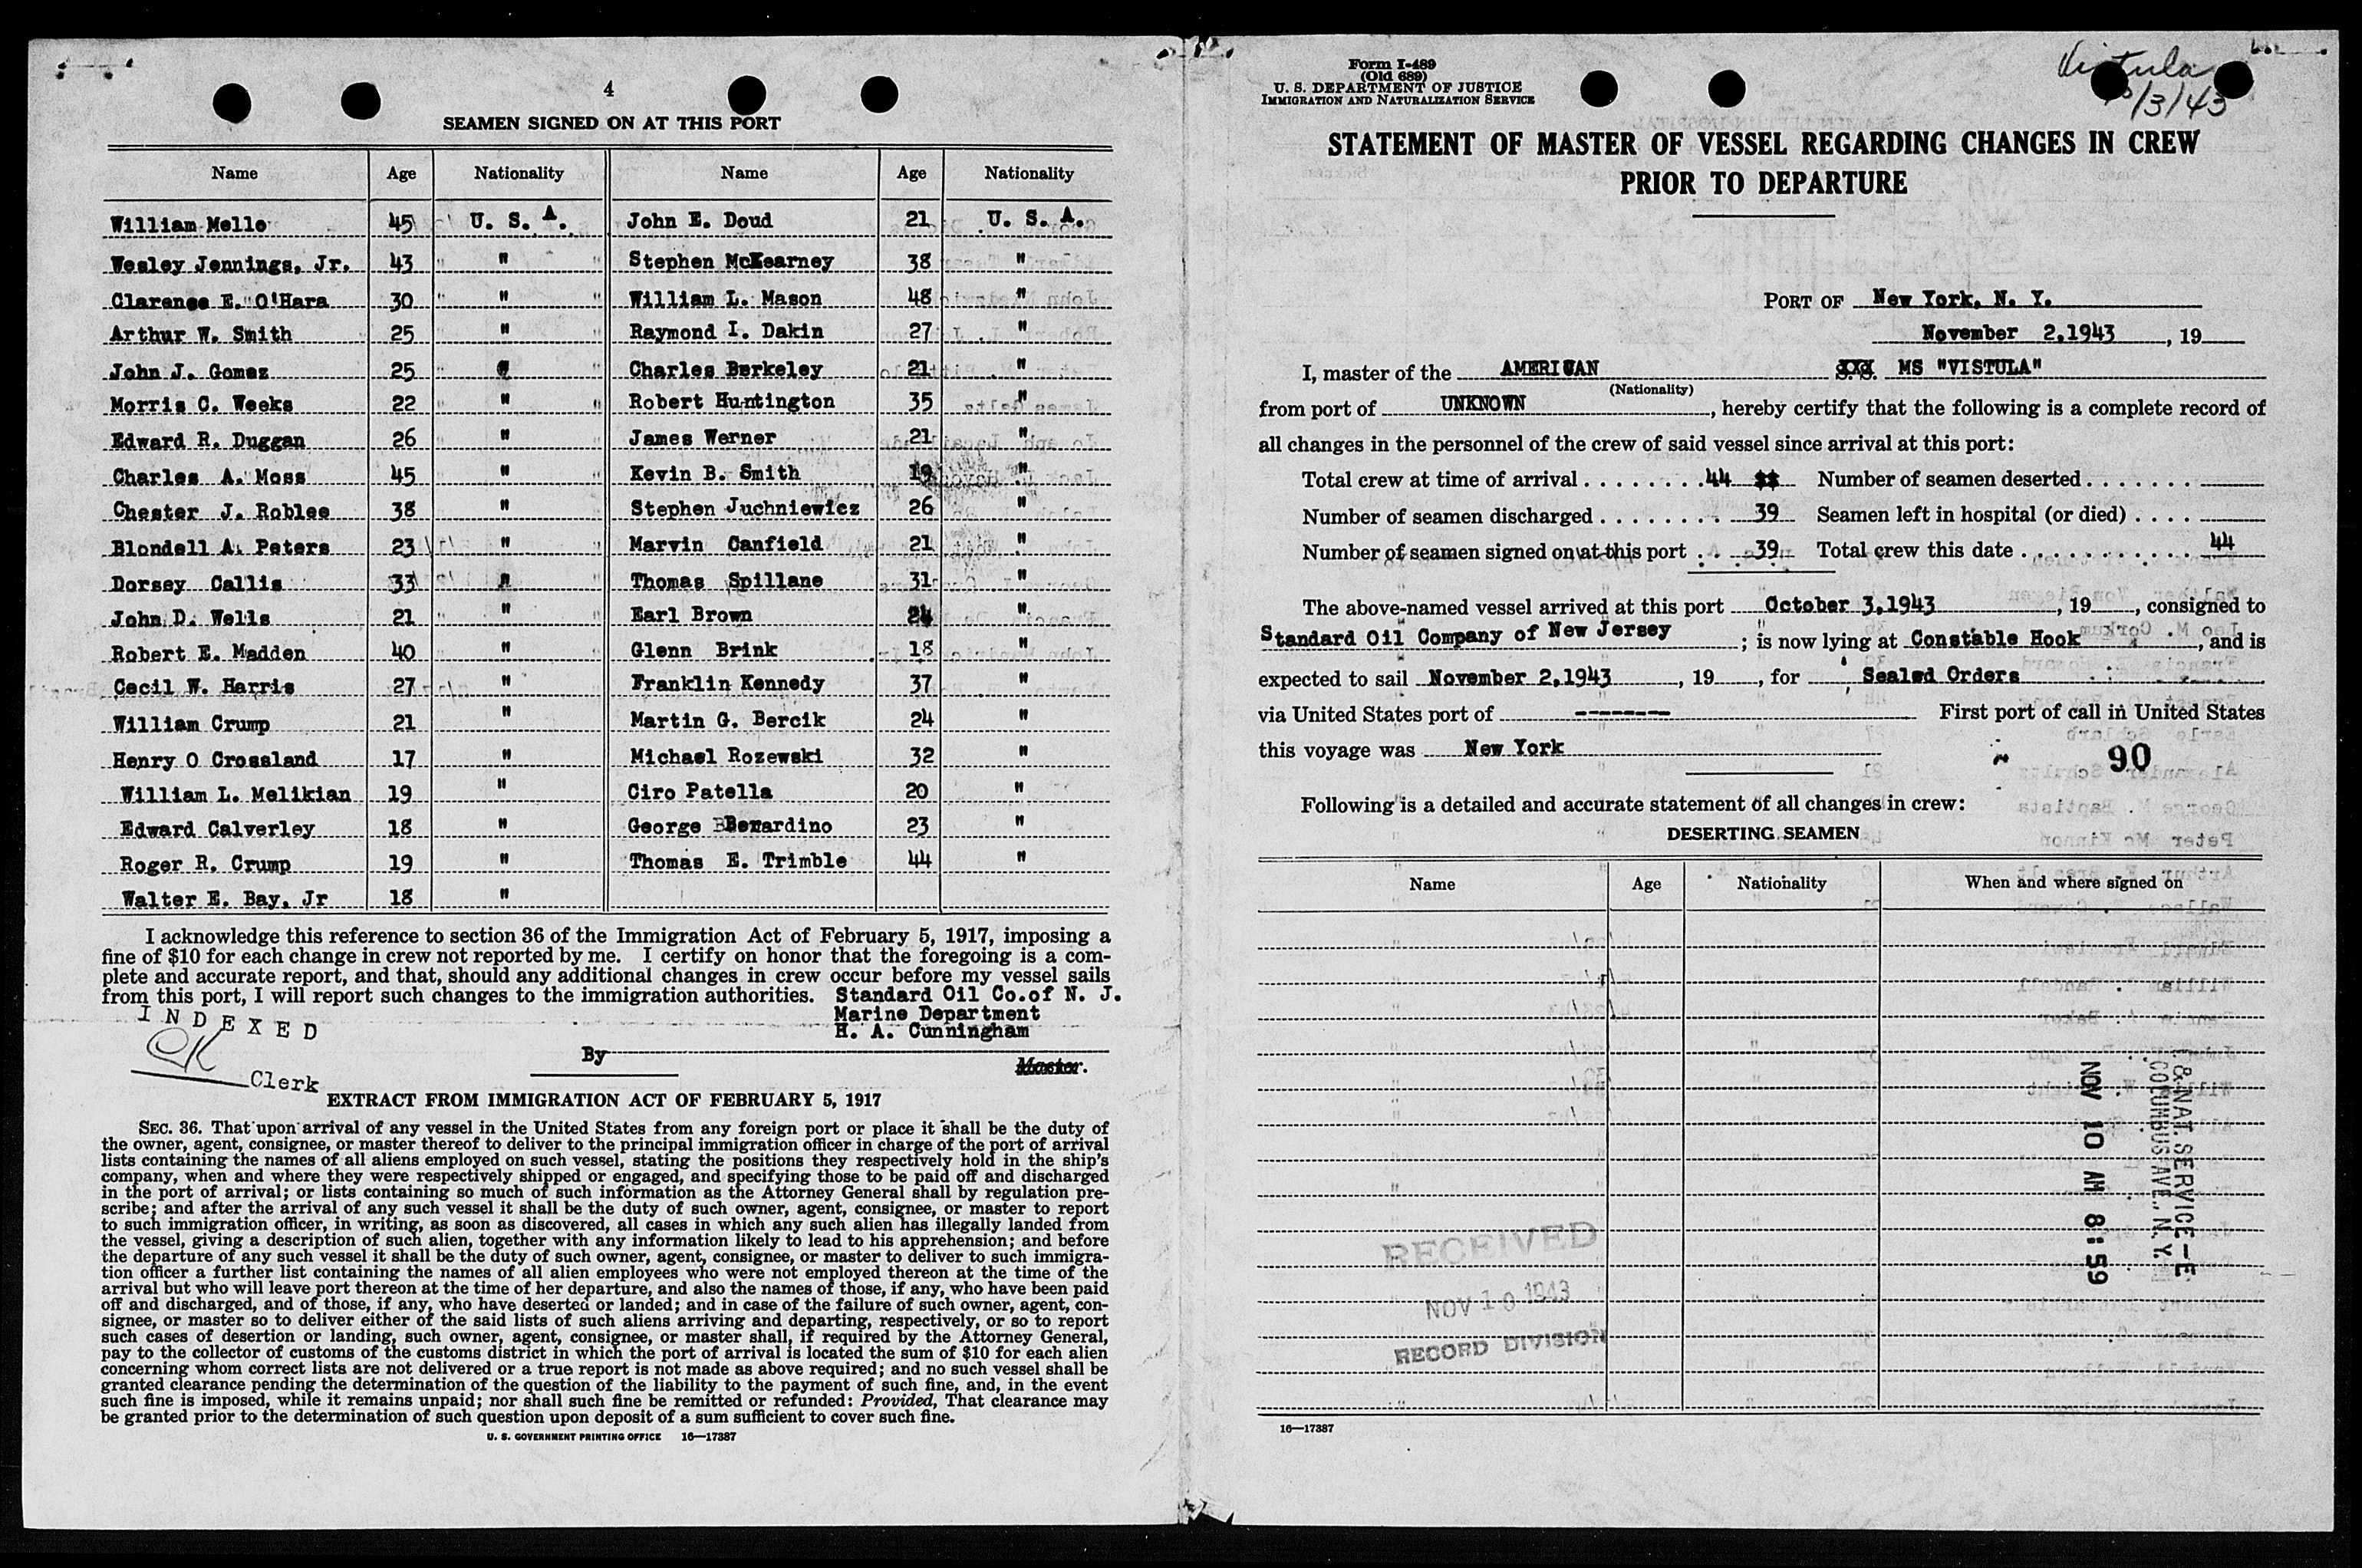 4
SEAMEN SIGNED ON AT THIS PORT
Name Age Nationality Name Age Nationality
William Melle 45 U. S. A. John E. Doud 21 U. S. A.
Wesley Jennings, Jr. 43 " Stephen McKearney 38 "
Clarence E. O'Hara 30 " William L. Mason 48 "
Arthur W. Smith 25 " Raymond I. Dakin 27 "
John J. Gomez 25 " Charles Berkeley 21 "
Morris C. Weeks 22 " Robert Huntington 35 "
Edward R. Duggan 26 " James Werner 21 "
Charles A. Moss 45 " Kevin B. Smith 19 "
Chester J. Roblee 38 " Stephen Juchniewicz 26 "
Blondell A. Peters 23 " Marvin Canfield 21 "
Dorsey Callis 33 " Thomas Spillane 31 "
John D. Wells 21 " Earl Brown 24 "
Robert E. Madden 40 " Glenn Brink 18 "
Cecil W. Harris 27 " Franklin Kennedy 37 "
William Crump 21 " Martin G. Bercik 24 "
Henry O Crossland 17 " Michael Rozewski 32 "
William L. Melikian 19 " Ciro Patella 20 "
Edward Calverley 18 " George Berardino 23 "
Roger R. Crump 19 " Thomas E. Trimble 44 "
Walter E. Bay, Jr 18 "
I acknowledge this reference to section 36 of the Immigration Act of February 5, 1917, imposing a
fine of $10 for each change in crew not reported by me. I certify on honor that the foregoing is a com-
plete and accurate report, and that, should any additional changes in crew occur before my vessel sails
from this port, I will report such changes to the immigration authorities. Standard Oil Co.of N. J.
Marine Department
H. A. Cunningham
INDEXED
OK
Clerk
By
Master.
EXTRACT FROM IMMIGRATION ACT OF FEBRUARY 5, 1917
SEC. 36. That upon arrival of any vessel in the United States from any foreign port or place it shall be the duty of
the owner, agent, consignee, or master thereof to deliver to the principal immigration officer in charge of the port of arrival
lists containing the names of all aliens employed on such vessel, stating the positions they respectively hold in the ship's
company, when and where they were respectively shipped or engaged, and specifying those to be paid off and discharged
in the port of arrival; or lists containing so much of such information as the Attorney General shall by regulation pre-
scribe; and after the arrival of any such vessel it shall be the duty of such owner, agent, consignee, or master to report
to such immigration officer, in writing, as soon as discovered, all cases in which any such alien has illegally landed from
the vessel, giving a description of such alien, together with any information likely to lead to his apprehension; and before
the departure of any such vessel it shall be the duty of such owner, agent, consignee, or master to deliver to such immigra-
tion officer a further list containing the names of all alien employees who were not employed thereon at the time of the
arrival but who will leave port thereon at the time of her departure, and also the names of those, if any, who have been paid
off and discharged, and of those, if any, who have deserted or landed; and in case of the failure of such owner, agent, con-
signee, or master so to deliver either of the said lists of such aliens arriving and departing, respectively, or so to report
such cases of desertion or landing, such owner, agent, consignee, or master shall, if required by the Attorney General,
pay to the collector of customs of the customs district in which the port of arrival is located the sum of $10 for each alien
concerning whom correct lists are not delivered or a true report is not made as above required; and no such vessel shall be
granted clearance pending the determination of the question of the liability to the payment of such fine, and, in the event
such fine is imposed, while it remains unpaid; nor shall such fine be remitted or refunded: Provided, That clearance may
be granted prior to the determination of such question upon deposit of a sum sufficient to cover such fine.
U. S. GOVERNMENT PRINTING OFFICE 16—17387
Form I-489
(Old 689)
U. S. DEPARTMENT OF JUSTICE
IMMIGRATION AND NATURALIZATION SERVICE
Vistula
/3/43
STATEMENT OF MASTER OF VESSEL REGARDING CHANGES IN CREW
PRIOR TO DEPARTURE
PORT OF New York, N. Y.
November 2,1943, 19
I, master of the AMERICAN XXX. MS "VISTULA"
(Nationality)
from port of UNKNOWN, hereby certify that the following is a complete record of
all changes in the personnel of the crew of said vessel since arrival at this port:
Total crew at time of arrival 44 Number of seamen deserted
Number of seamen discharged 39 Seamen left in hospital (or died)
Number of seamen signed on at this port 39 Total crew this date 44
The above-named vessel arrived at this port October 3,1943, 19, consigned to
Standard Oil Company of New Jersey; is now lying at Constable Hook, and is
expected to sail November 2,1943, 19, for Sealed Orders
via United States port of ------- First port of call in United States
this voyage was New York
90
Following is a detailed and accurate statement of all changes in crew:
DESERTING SEAMEN
Name Age Nationality When and where signed on
I & NAT. SERVICE - E
COLUMBUS AVE., N. Y.
NOV 10 AM 8:59
RECEIVED
NOV 10 1943
RECORD DIVISION
16—17387